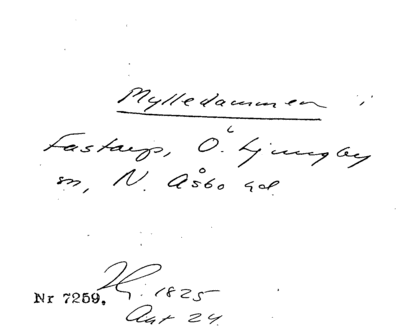 Mylledammen i
Fastarp, Ö. Ljungby
sn, N. Åsbo hd
Nr 7259, 1825
Akt 24